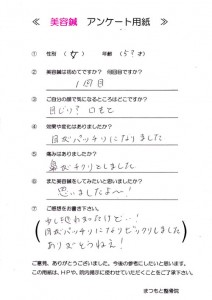 ≪ 美容鍼 アンケート用紙 ≫
① 性別 ( 女 ) 年代 ( 5? 才)
② 美容鍼は初めてですか? 何回目ですか?
1回目
③ ご自分の顔で気になるところはどこですか?
目じり? 口もと
④ 効果や変化はありましたか?
目がパッチリになりました
⑤ 痛みはありましたか?
鼻がチクリとしました
⑥ また美容鍼をしてみたいと思いましたか?
思いましたよ〜!
⑦ ご感想をお書き下さい。
少し恐れかったけど…!
目がパッチリになりビックリしました
ありがとうねえ!
ご意見、ありがとうございました。今後の参考にしたいと思います。
この用紙は、HPや、院内掲示に使わせていただくことをご了承下さい。
まつもと整骨院